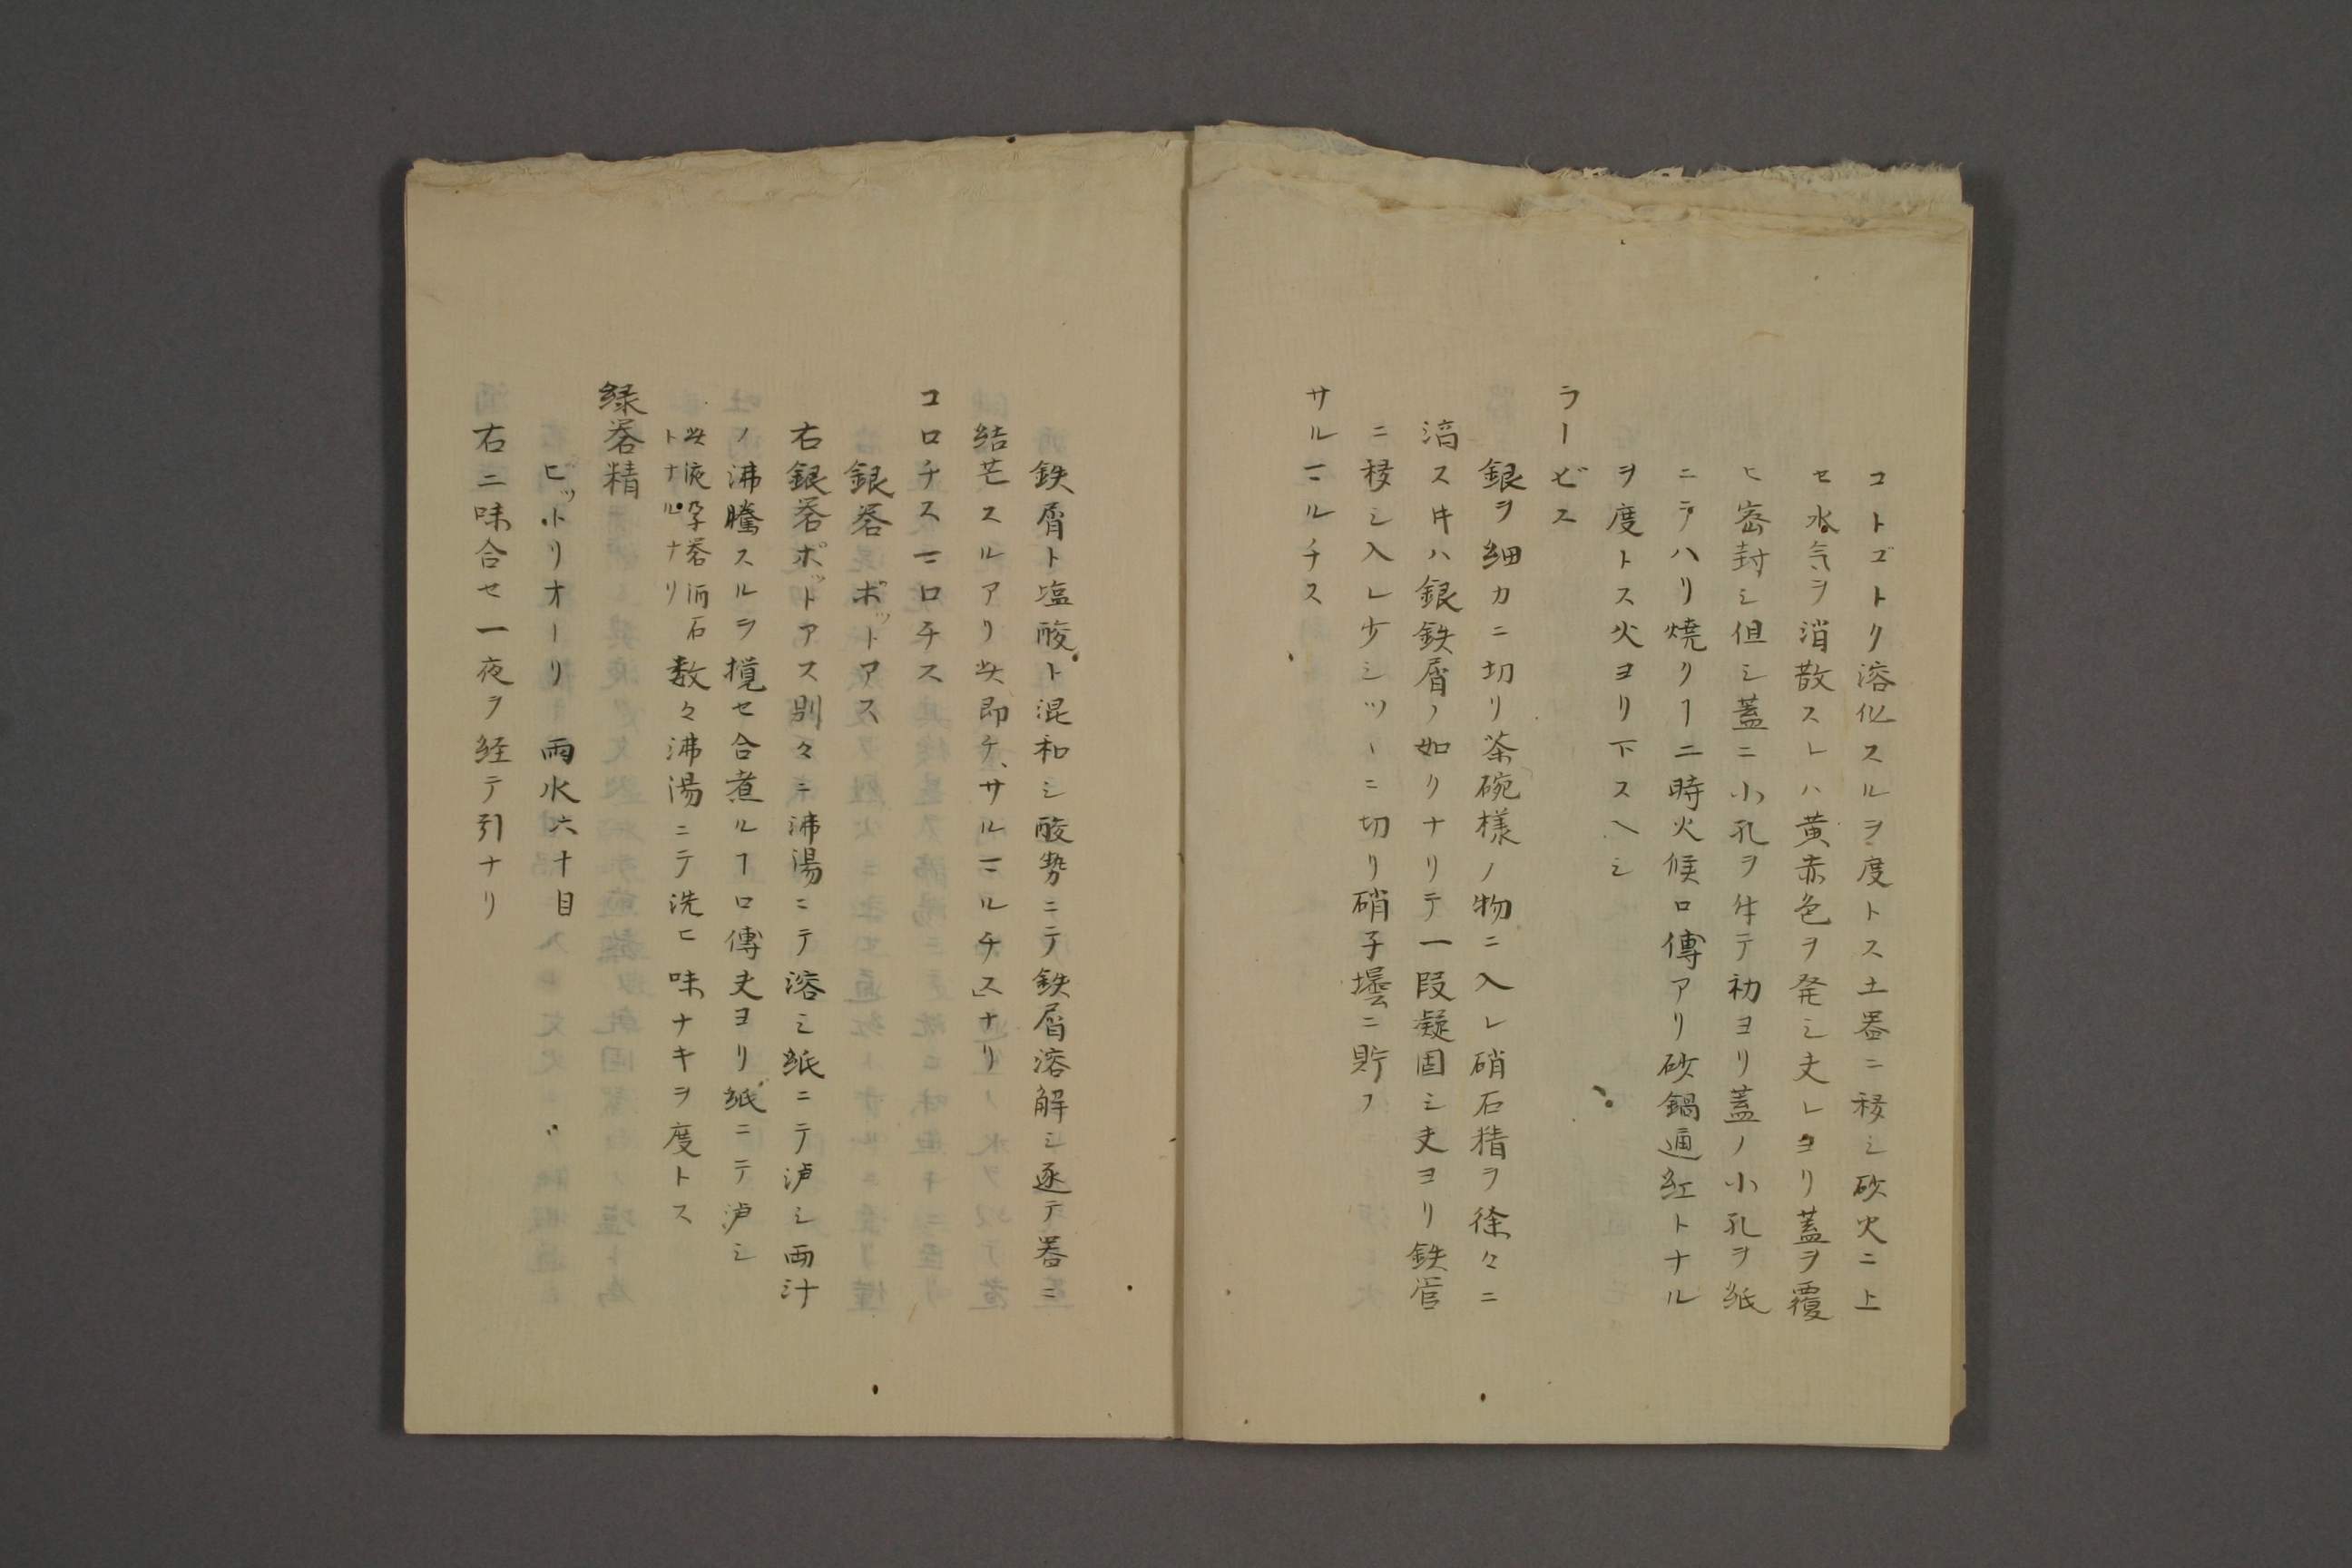 コトゴトク溶化スルヲ度トス土器ニ移シ砂火ニ上
セ水気ヲ消散スレハ黄赤色ヲ発シ丈レヨリ蓋ヲ覆
ヒ密封シ但シ蓋ニ小孔ヲ作テ初ヨリ蓋ノ小孔ヲ紙
ニテハリ焼クヿ二時火候口傳アリ砂鍋通紅トナル
ヲ度トス火ヨリ下スヘシ
ラービス
銀ヲ細カニ切リ茶碗様ノ物ニ入レ硝石精ヲ徐々ニ
滴スキハ銀鉄屑ノ如クナリテ一段凝固シ丈ヨリ鉄管
ニ移シ入レ少シツヽニ切リ硝子壜ニ貯フ
サルマルチス
鉄屑ト塩酸ト混和シ酸勢ニテ鉄屑溶解シ逐テ器ニ
結芒スルアリ此即チ、サルマルチス」ナリ
コロチスマロチス
銀礬 ポットアス
右銀礬ポットアス別々ニ沸湯ニテ溶シ紙ニテ濾シ両汁
ノ沸騰スルヲ攪セ合煮ルヿ口傳丈ヨリ紙ニテ濾シ
此液孕礬酒石
トナルナリ
数々沸湯ニテ洗ヒ味ナキヲ度トス
緑礬精
ビットリオーリ 雨水六十目
右二味合セ一夜ヲ経テ引ナリ